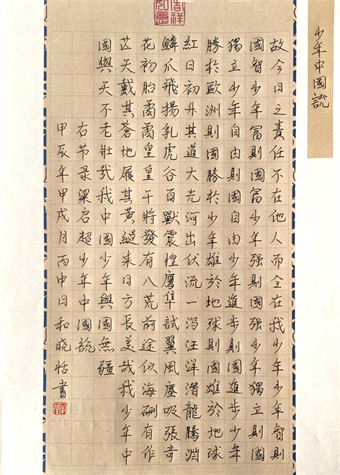 少年中國說
吉祥如意
故今日之責任不在他人而全在我少年少年智則
國智少年富則國富少年強則國強少年獨立則國
獨立少年自由則國自由少年進步則國進步少年
勝於歐洲則國勝於少年雄於地球則國雄於地球
紅日初升其道大光河出伏流一瀉汪洋潛龍騰淵
鱗爪飛揚乳虎谷百獸震惶鷹隼試翼風塵吸張奇
花初胎矞矞皇皇干將發有八荒前途似海硎有作
芒天戴其蒼地履其黃縱來日方長美哉我少年中
國與天不老壯哉我中國少年與國無疆
右节录梁启超少年中國說
甲辰年甲戌月丙申日和晓怡書